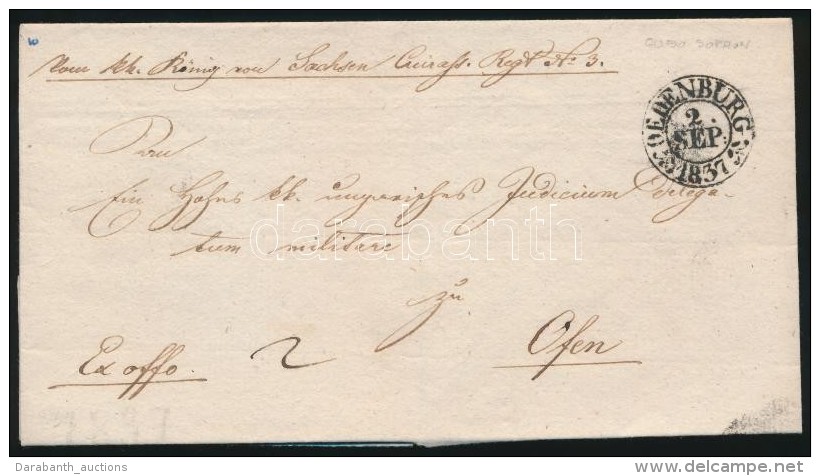 Vom kk. König von Sachsen Cuirass. Regt No 3.
OEDENBURG
2
SEP.
1837
Ein Hohes kk. ungrisches Judicium delega-
tum militare
zu
Ofen
Ex offo.
2
databanth
Darabanth_auctions
www.delcampe.net